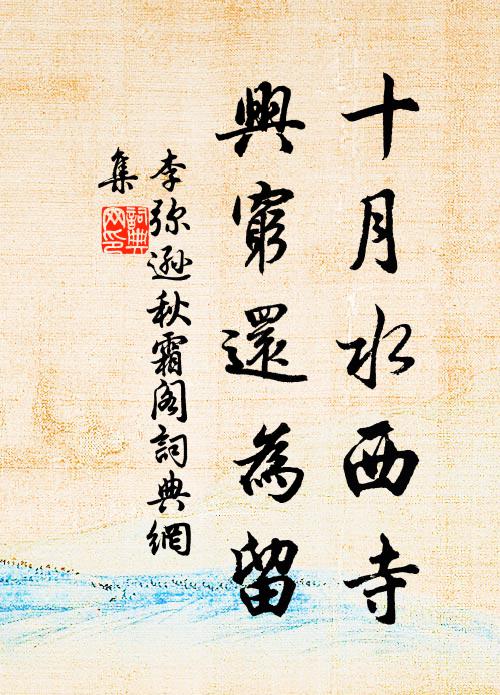 十月水西寺
興窮還為留
李弥遜秋霜阁詞典網
集
詞典
网印